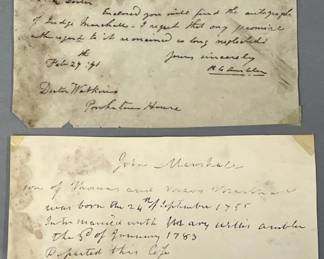 Enclosed you will find the autograph
of Judge Marshall - I regret that my promise
with regard to it remained so long neglected
Yours sincerely
Feby 29th /91
R C Ambler
Doctor Watkins
Powhatan House
John Marshall
son of Thomas and
was born the 24th of September 1755
Intermarried with Mary Willis Ambler
the 3d of January 1783
Departed this Life